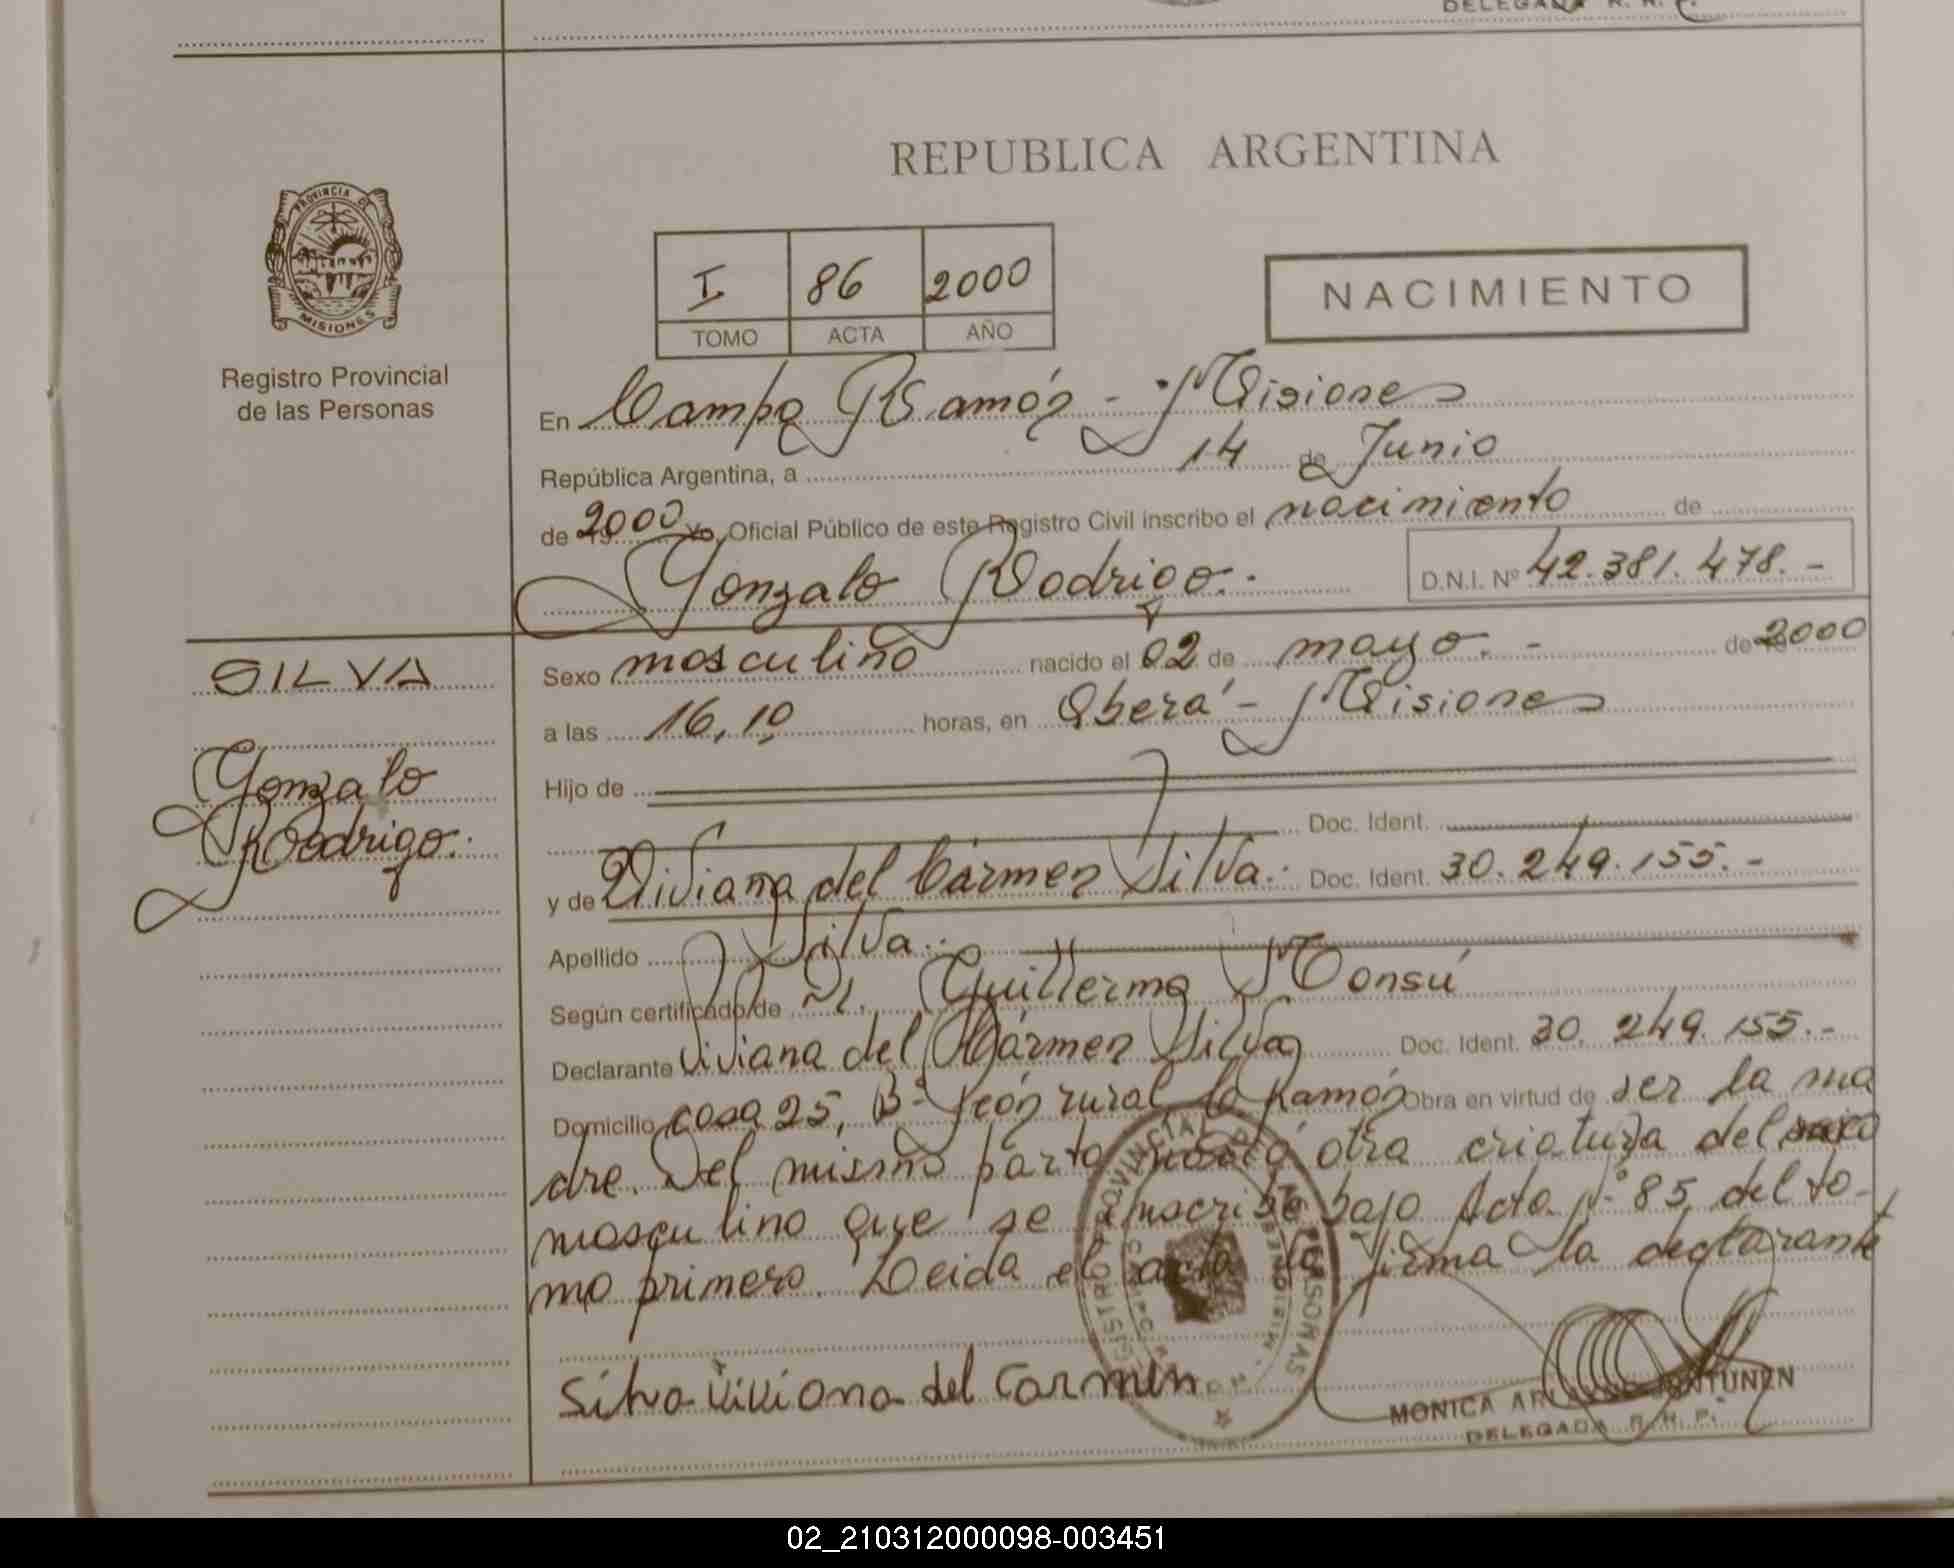 DELEGADA R. R. P.
REPUBLICA ARGENTINA
PROVINCIA DE
MISIONES
Registro Provincial
de las Personas
I 86 2000
TOMO ACTA AÑO
NACIMIENTO
En Campo Ramón - Misiones
República Argentina, a 14 de Junio
de 2000 Yo, Oficial Público de este Registro Civil inscribo el nacimiento de
Gonzalo Rodrigo.
D.N.I. Nº 42.381.478.-
SILVA
Gonzalo
Rodrigo.
Sexo masculino nacido el 02 de mayo.- de 2000
a las 16,10 horas, en Oberá - Misiones
Hijo de
Doc. Ident.
y de Viviana del Cármen Silva.- Doc. Ident. 30.249.155.-
Apellido Silva.-
Según certificado de Guillermo Monsú
Declarante Viviana del Cármen Silva Doc. Ident. 30.249.155.-
Domicilio casa 25, Bº peón rural Cº Ramón Obra en virtud de ser la ma
dre. Del mismo parto nació otra criatura del sexo
masculino que se inscribe bajo Acta Nº 85, del to-
mo primero. Leida el acta la firma la declarante
Silva Viviana del Carmen
MONICA ANTUNEN
DELEGADA R. R. P.
02_210312000098-003451